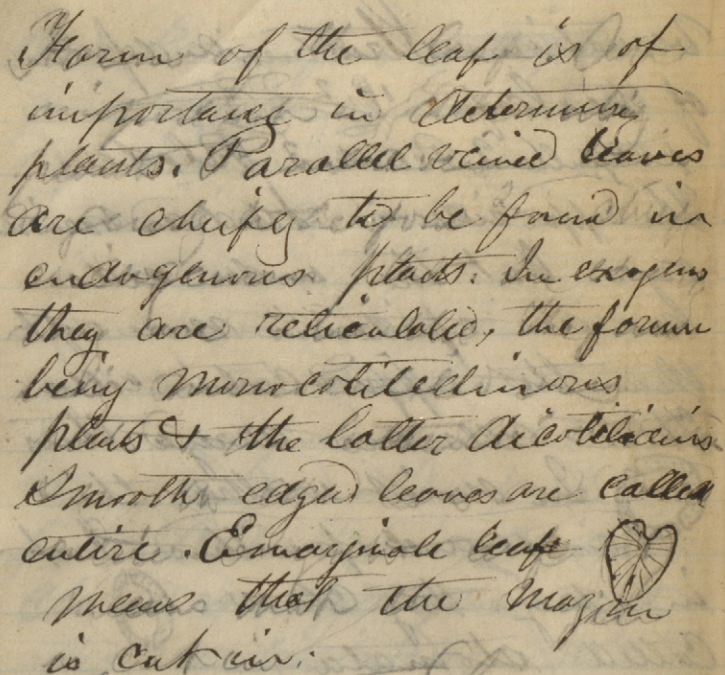 Form of the leaf is of
importance in determining
plants. Parallel veined leaves
are cheifly to be found in
endogenous plants. In exogens
they are reticulated, the former
being monocotiledinous
plants & the latter dicotiledins
Smooth edged leaves are called
entire. Emarginate leaf
means that the margin
is cut in.